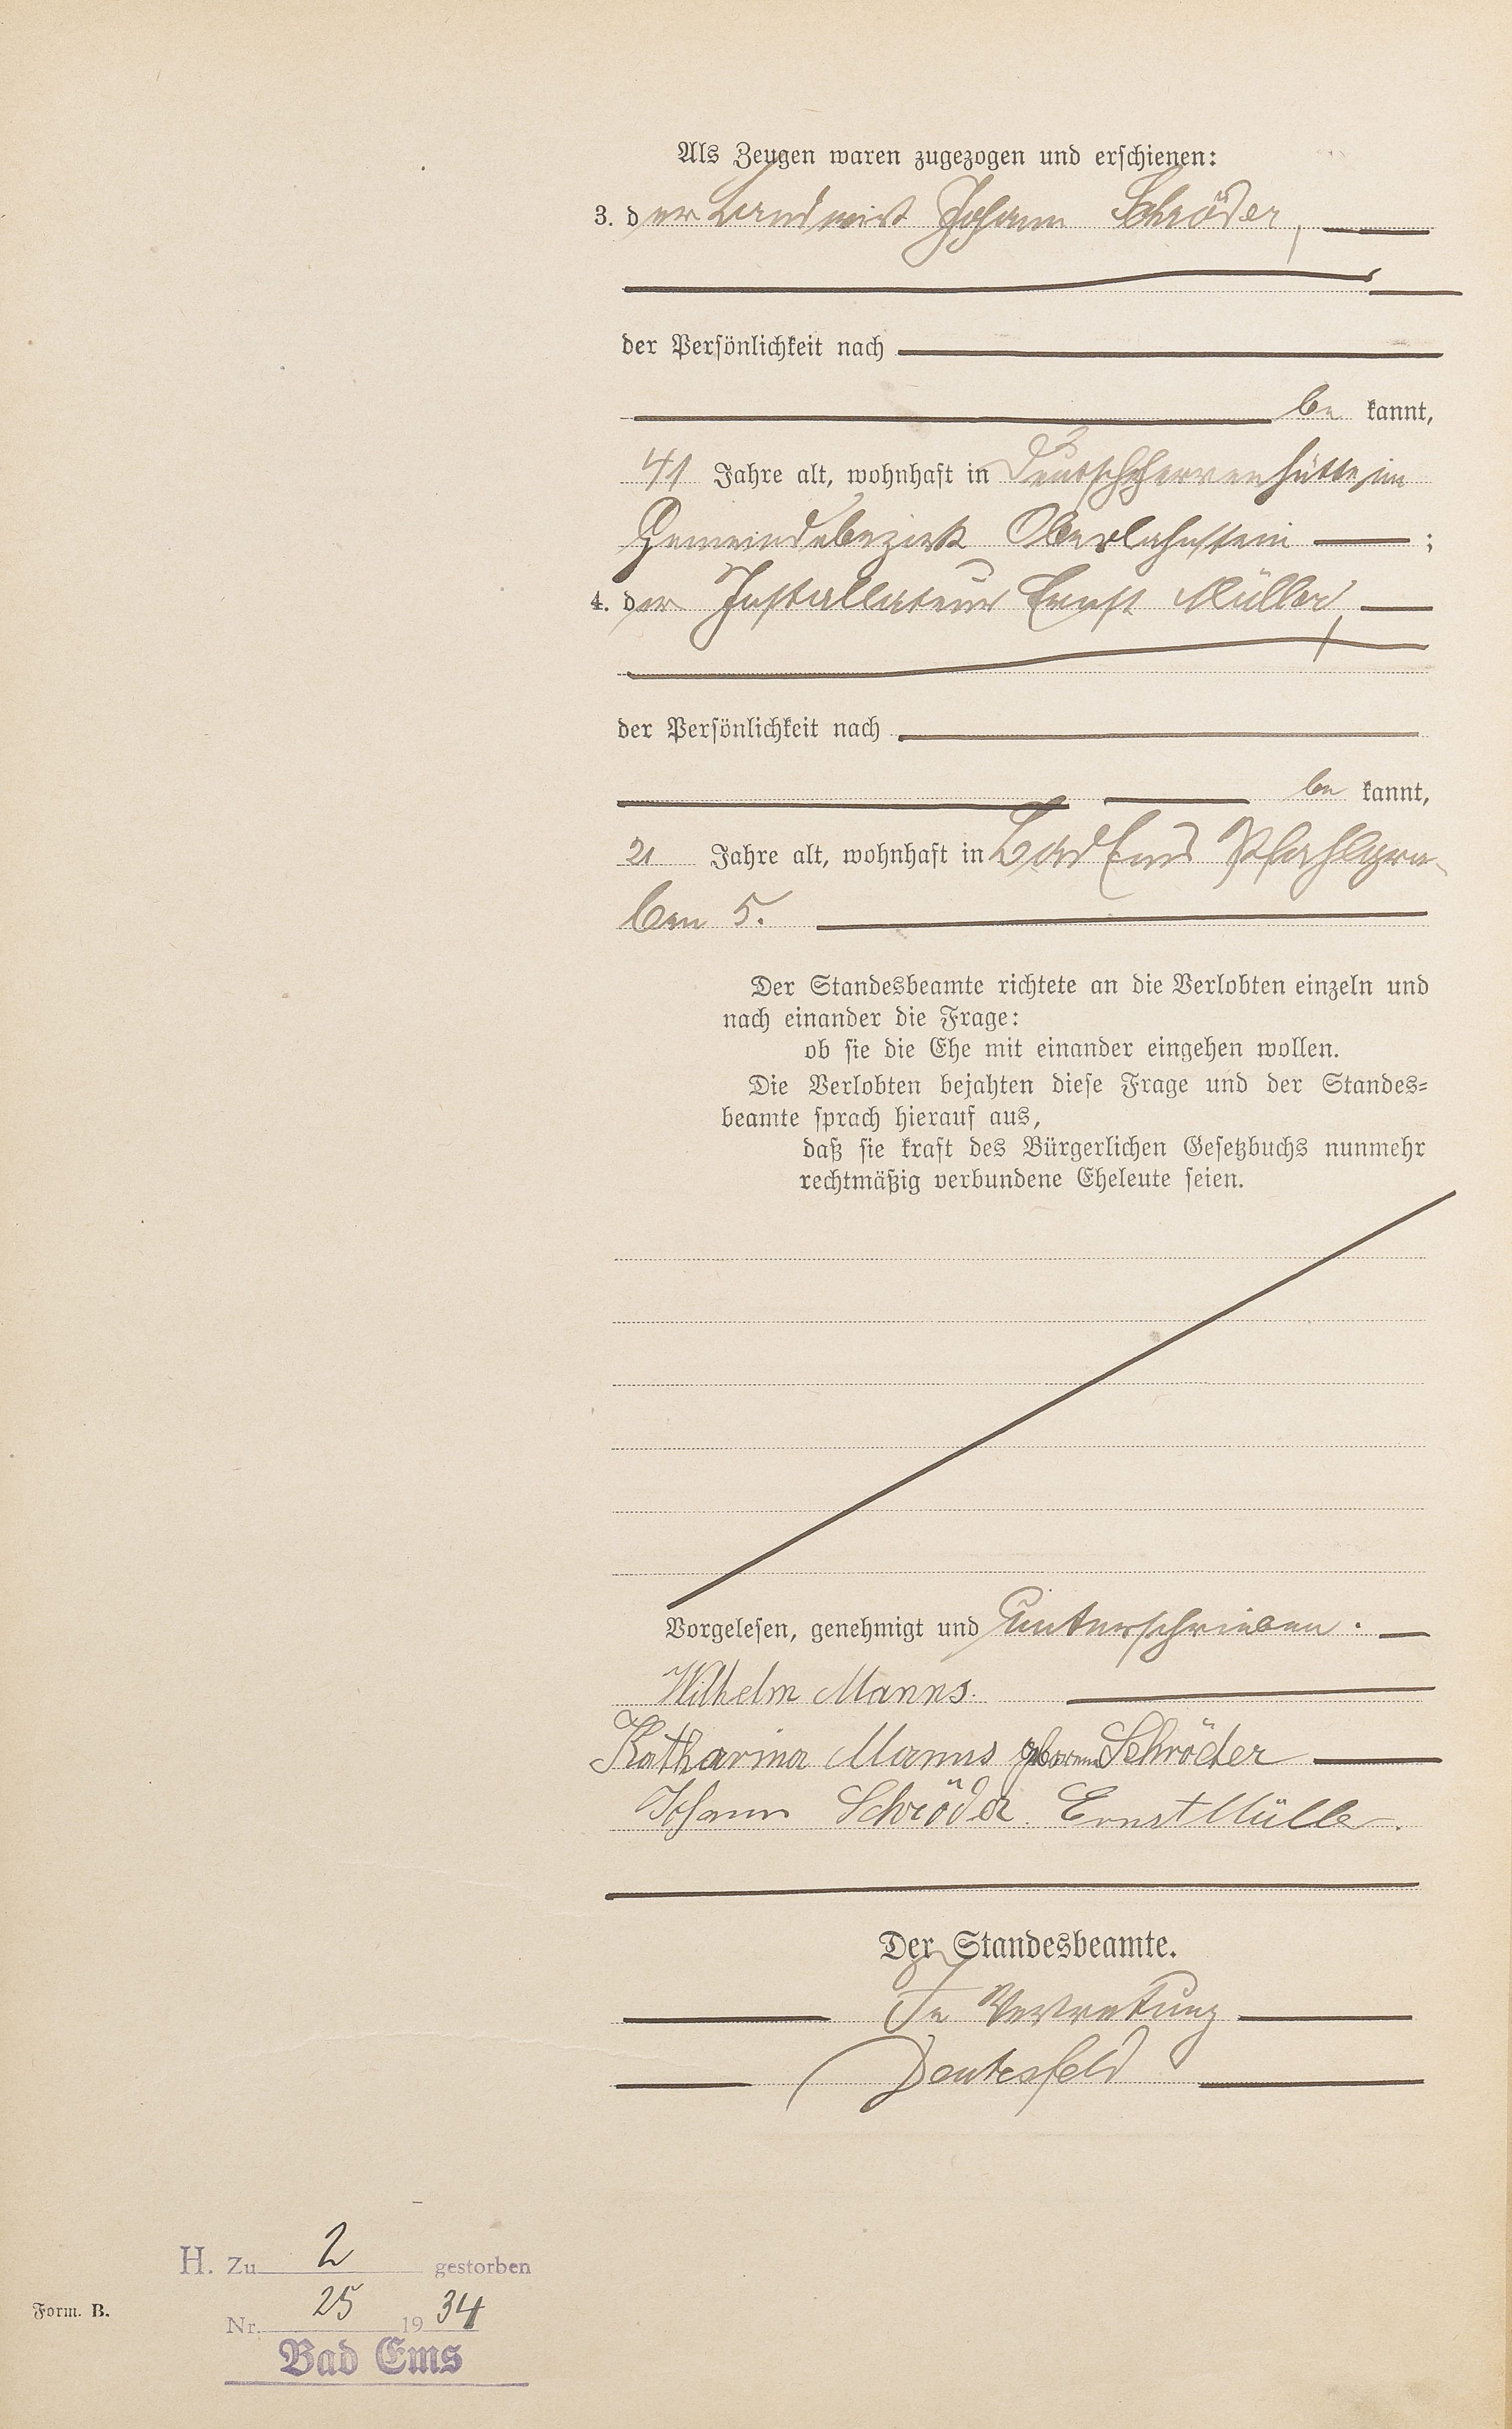 Als Zeugen waren zugezogen und erschienen:
3. der Landwirt Johann Schröder,
der Persönlichkeit nach
be kannt,
41 Jahre alt, wohnhaft in Deutschherrenhütte, im
Gemeindebezirk Oberlahnstein ;
4. der Installateur Ernst Müller,
der Persönlichkeit nach
be kannt,
21 Jahre alt, wohnhaft in Bad Ems Pfahlgra-
ben 5.
Der Standesbeamte richtete an die Verlobten einzeln und
nach einander die Frage:
ob sie die Ehe mit einander eingehen wollen.
Die Verlobten bejahten diese Frage und der Standes-
beamte sprach hierauf aus,
daß sie kraft des Bürgerlichen Gesetzbuchs nunmehr
rechtmäßig verbundene Eheleute seien.
Vorgelesen, genehmigt und unterschrieben.
Wilhelm Manns.
Katharina Manns geborene Schröder
Johann Schröder. Ernst Müller.
Der Standesbeamte.
In Vertretung
Deutesfeld
H. Zu 2 gestorben
Nr. 25 1934
Form. B.
Bad Ems